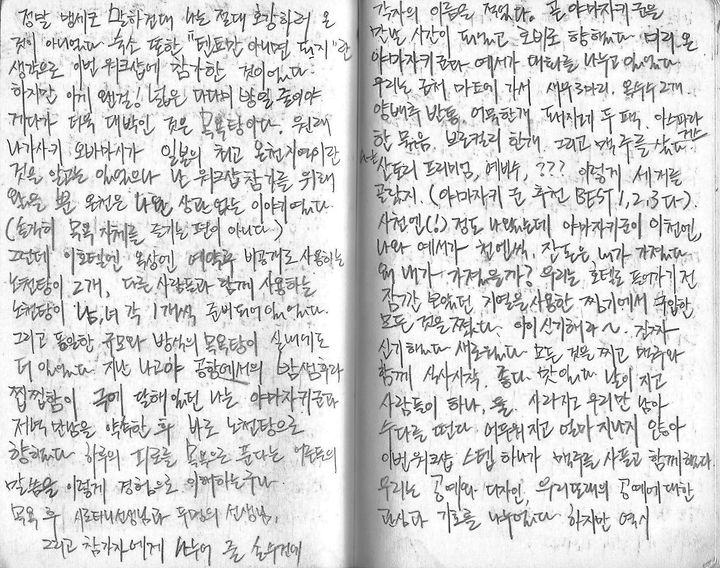 정말 맹세코 말하건대 나는 절대 호강하러 온
것이 아니었다 숙소 또한, "텐트만 아니면 되지"란
생각으로 이번 워크샵에 참가한 것이었다.
하지만 이게 웬걸! 넓은 다다미 방일 줄이야
게다가 더욱 대박인 것은 목욕탕이다. 원래
나가사키 오바마시가 일본의 최고 온천지역이란
것을 알고는 있었으나 난 워크샵 참가를 위해
왔을 뿐 온천은 나와 상관 없는 이야기였다
(솔직히 목욕 자체를 즐기는 편이 아니다.)
그런데 이 호텔엔 옥상엔 예약후 비공개로 사용하는
노천탕이 2개, 다른 사람들과 함께 사용하는
노천탕이 남,녀 각 1개씩, 준비되어 있었다.
그리고 동일한 규모와 방식의 목욕탕이 실내에도
더 있었다 지난 나고야 공항에서의 밤샘으로
찝찝함이 극에 달해있던 나는 야마자키군과
저녁 만남을 약속한 후 바로 노천탕으로
향했다 하루의 피로를 목욕으로 푼다는 어른들의
말씀을 이렇게 경험으로 이해하는구나
목욕 후 시로타니선생님과 선생님,
그리고 참가자에게 나누어 줄 손수건에
각자의 이름을 적었다. 곧 야마자키군을
만날 시간이 되었고 로비로 향했다 미리 온
야마자키군과 예서가 대화를 나누고 있었다
우리는 근처 마트에 가서 새우 마리. 옥수수 2개
양배추 반통, 어묵한개 돼지고기 두 팩. 아스파라거스
한 묶음, 브로컬리 한개. 그리고 맥주를 샀다.
나는 산토리 프리미엄, 에비수, ??? 이렇게 세개를
골랐지. (야마자키 군 추천 BEST 1,2,3 다).
사천엔(!) 정도 나왔는데 야마자키군이 이천엔,
나와 예서가 천엔씩, 잔돈은 내가 가졌다
왜 내가 가졌을까? 우리는 호텔로 돌아가기 전
잠깐 보았던 지열을 사용한 찜기에서 구입한
모든 것을 쪘다. 아이 신기해라~. 진짜
신기했다 새로웠다 모든 것을 찌고 맥주와
함께 식사시작. 좋다 맛있다 날이 지고
사람들이 하나, 둘, 사라지고 우리만 남아
수다를 떨었다 어두워지고 얼마 지나지 않아
이번워크샵 스텝 하나가 맥주를 사들고 함께했다
우리는 공예와 디자인, 우리또래의 공예에 대한
관심과 기호를 나누었다 하지만 역시